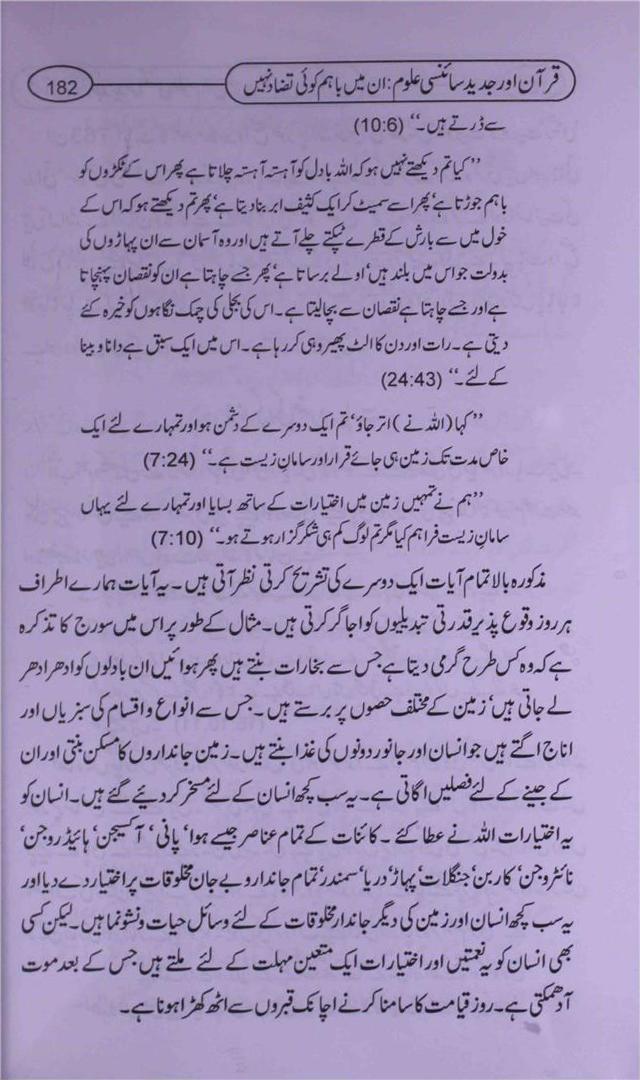 182
قرآن اور جدید سائنسی علوم: ان میں باہم کوئی تضاد نہیں
سے ڈرتے ہیں۔‘‘ (10:6)
’’کیا تم دیکھتے نہیں ہو کہ اللہ بادل کو آہستہ آہستہ چلاتا ہے پھر اس کے ٹکڑوں کو
باہم جوڑتا ہے‘ پھر اسے سمیٹ کر ایک کثیف ابر بنا دیتا ہے‘ پھر تم دیکھتے ہو کہ اس کے
خول میں سے بارش کے قطرے ٹپکتے چلے آتے ہیں اور وہ آسمان سے ان پہاڑوں کی
بدولت جو اس میں بلند ہیں‘ اولے برساتا ہے‘ پھر جسے چاہتا ہے ان کو نقصان پہنچاتا
ہے اور جسے چاہتا ہے نقصان سے بچا لیتا ہے۔ اس کی بجلی کی چمک نگاہوں کو خیرہ کئے
دیتی ہے۔ رات اور دن کا الٹ پھیر وہی کر رہا ہے۔ اس میں ایک سبق ہے دانا و بینا
کے لئے۔‘‘ (24:43)
’’کہا (اللہ نے) اتر جاؤ‘ تم ایک دوسرے کے دشمن ہو اور تمہارے لئے ایک
خاص مدت تک زمین ہی جائے قرار اور سامانِ زیست ہے۔‘‘ (7:24)
’’ہم نے تمہیں زمین میں اختیارات کے ساتھ بسایا اور تمہارے لئے یہاں
سامانِ زیست فراہم کیا مگر تم لوگ کم ہی شکر گزار ہوتے ہو۔‘‘ (7:10)
مذکورہ بالا تمام آیات ایک دوسرے کی تشریح کرتی نظر آتی ہیں۔ یہ آیات ہمارے اطراف
ہر روز وقوع پذیر قدرتی تبدیلیوں کو اجاگر کرتی ہیں۔ مثال کے طور پر اس میں سورج کا تذکرہ
ہے کہ وہ کس طرح گرمی دیتا ہے جس سے بخارات بنتے ہیں پھر ہوائیں ان بادلوں کو ادھر ادھر
لے جاتی ہیں‘ زمین کے مختلف حصوں پر برستے ہیں۔ جس سے انواع و اقسام کی سبزیاں اور
اناج اگتے ہیں جو انسان اور جانور دونوں کی غذا بنتے ہیں۔ زمین جانداروں کا مسکن بنتی اور ان
کے جینے کے لئے فصلیں اگاتی ہے۔ یہ سب کچھ انسان کے لئے مسخر کر دیئے گئے ہیں۔ انسان کو
یہ اختیارات اللہ نے عطا کئے۔ کائنات کے تمام عناصر جیسے ہوا‘ پانی‘ آکسیجن‘ ہائیڈروجن‘
نائٹروجن‘ کاربن‘ جنگلات‘ پہاڑ‘ دریا‘ سمندر‘ تمام جاندار و بے جان مخلوقات پر اختیار دے دیا اور
یہ سب کچھ انسان اور زمین کی دیگر جاندار مخلوقات کے لئے وسائل حیات و نشوونما ہیں۔ لیکن کسی
بھی انسان کو یہ نعمتیں اور اختیارات ایک متعین مہلت کے لئے ملتے ہیں جس کے بعد موت
آ دھمکتی ہے۔ روز قیامت کا سامنا کرنے اچانک قبروں سے اٹھ کھڑا ہونا ہے۔